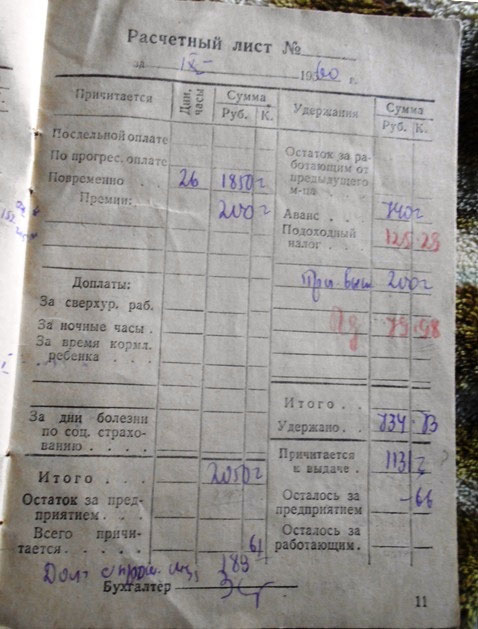 Расчетный лист №
за IX 1960 г.
Причитается Дни, часы Сумма Руб. К. Удержания Сумма Руб. К.
Посдельной оплате
По прогрес. оплате
Повременно . . 26 1850
Премии: 200
Остаток за ра-
ботающим от
предыдущего
м-ца . . .
Аванс . . 740
Подоходный
налог . . 125 29
200
Доплаты:
За сверхур. раб.
За ночные часы .
За время кормл.
ребенка . . . .
За дни болезни
по соц. страхо-
ванию . . . .
Итого . . . 2050
Остаток за пред-
приятием . . .
Всего причи-
тается . . . . . 61
Итого . .
Удержано . .
Причитается
к выдаче . 1131
Осталось за
предприятием -66
Осталось за
работающим .
Долг 189
Бухгалтер
11